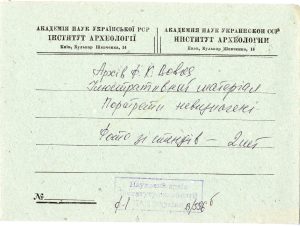 АКАДЕМІЯ НАУК УКРАЇНСЬКОЇ РСР
ІНСТИТУТ АРХЕОЛОГІЇ
Київ, Бульвар Шевченка, 14
АКАДЕМИЯ НАУК УКРАИНСКОЙ ССР
ИНСТИТУТ АРХЕОЛОГИИ
Киев, Бульвар Шевченко, 14
Архів Ф. К. Вовка
Ілюстративний матеріал
Портрети невизначені
Фото зі стендів — 2 шт
Науковий архів
№
ф-1
В/556 б